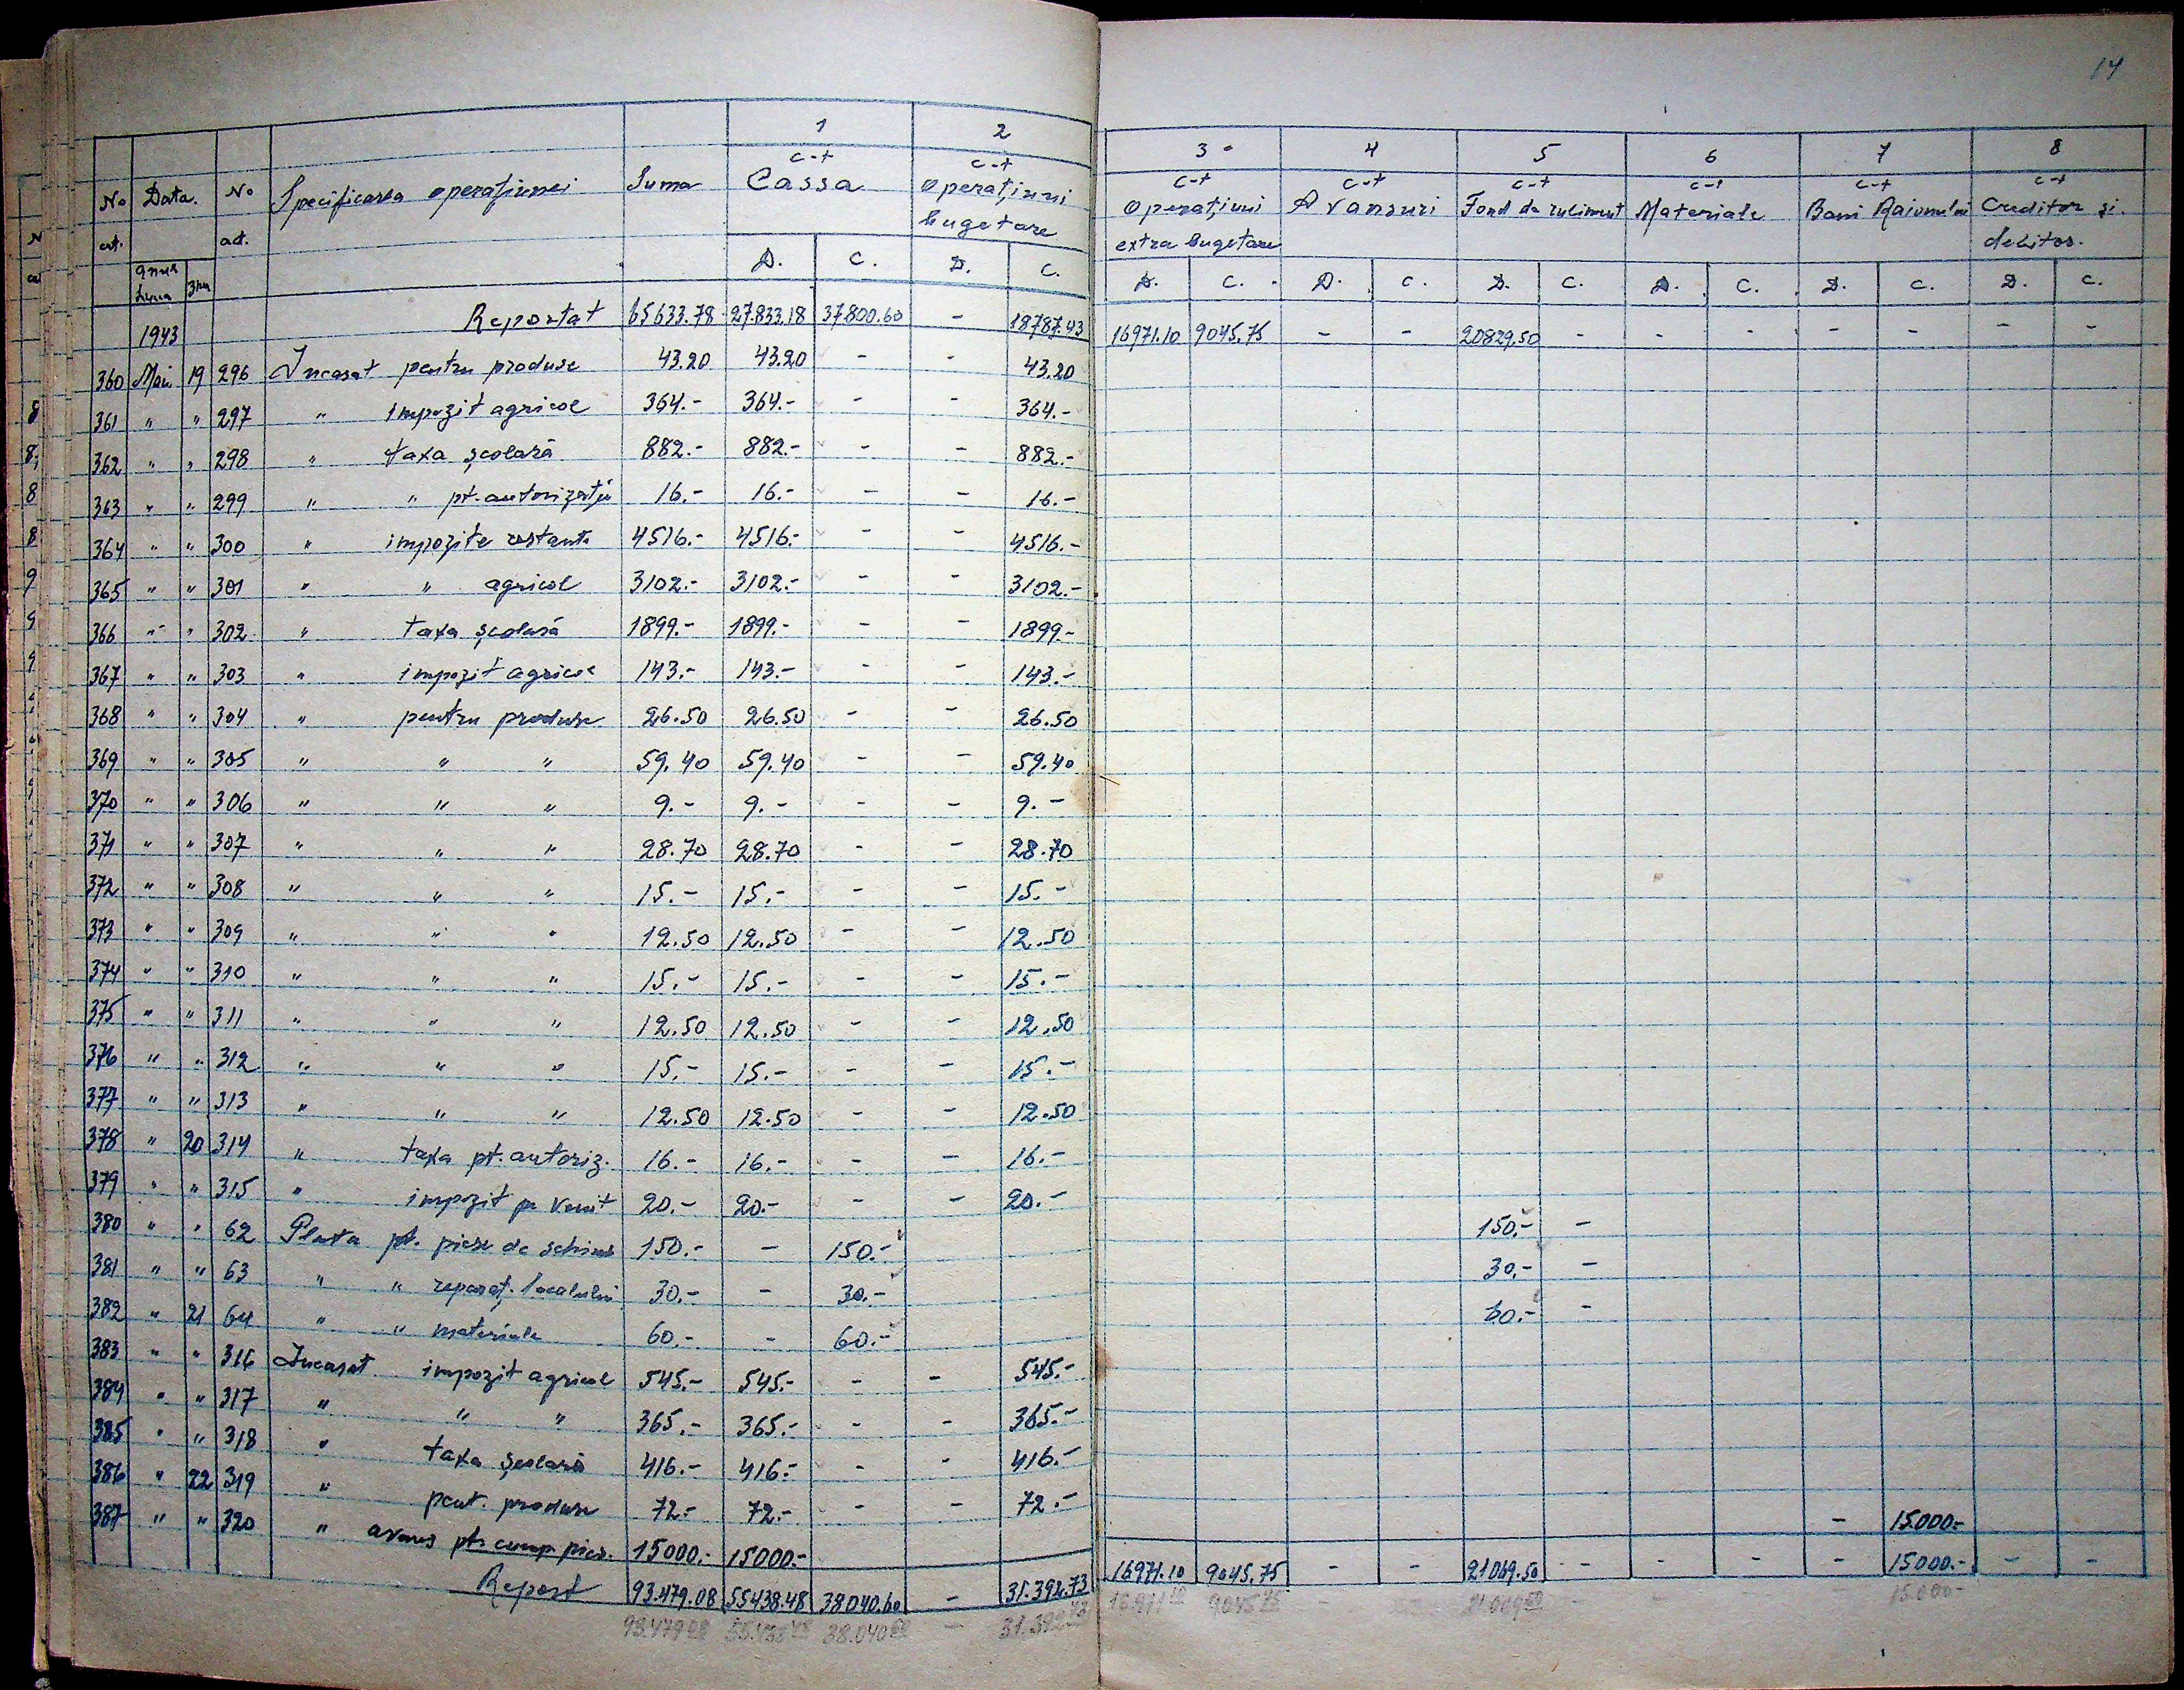 14
1 2
c-t c-t
No Data. No Specificarea operațiunei Suma Cassa operațiuni
crt. act. bugetare
anul luna ziua D. C. D. C.
3 4 5 6 7 8
c-t c-t c-t c-t c-t c-t
operațiuni Avansuri Fond de ruliment Materiale Bani Raionului Creditor și
extra bugetare debitor.
D. C. D. C. D. C. D. C. D. C. D. C.
1943 Reportat 65633.78 27.833.18 37800.60 - 18787.43 16971.10 9045.75 - - 20829.50 - - - - - - -
360 Mai 19 296 Incasat pentru produse 43.20 43.20 - - 43.20
361 " " 297 " impozit agricol 364.- 364.- - - 364.-
362 " " 298 " taxa școlară 882.- 882.- - - 882.-
363 " " 299 " " pt. autorizație 16.- 16.- - - 16.-
364 " " 300 " impozite restante 4516.- 4516.- - - 4516.-
365 " " 301 " " agricol 3102.- 3102.- - - 3102.-
366 " " 302 " taxa școlară 1899.- 1899.- - - 1899.-
367 " " 303 " impozit agricol 143.- 143.- - - 143.-
368 " " 304 " pentru produse 26.50 26.50 - - 26.50
369 " " 305 " " " 59.40 59.40 - - 59.40
370 " " 306 " " " 9.- 9.- - - 9.-
371 " " 307 " " " 28.70 28.70 - - 28.70
372 " " 308 " " " 15.- 15.- - - 15.-
373 " " 309 " " " 12.50 12.50 - - 12.50
374 " " 310 " " " 15.- 15.- - - 15.-
375 " " 311 " " " 12.50 12.50 - - 12.50
376 " " 312 " " " 15.- 15.- - - 15.-
377 " " 313 " " " 12.50 12.50 - - 12.50
378 " 20 314 " taxa pt. autoriz. 16.- 16.- - - 16.-
379 " " 315 " impozit pe venit 20.- 20.- - - 20.-
380 " " 62 Plata pt. piese de schimb 150.- - 150.- 150.- -
381 " " 63 " " reparaț. localului 30.- - 30.- 30.- -
382 " 21 64 " " materiale 60.- - 60.- 60.- -
383 " " 316 Incasat impozit agricol 545.- 545.- - - 545.-
384 " " 317 " " " 365.- 365.- - - 365.-
385 " " 318 " taxa școlară 416.- 416.- - - 416.-
386 " 22 319 " pent. produse 72.- 72.- - - 72.-
387 " " 320 " avans pt. cump. pies. 15000.- 15000.- - 15.000.-
Report 93.479.08 55438.48 38040.60 - 31.392.73 16971.10 9045.75 - - 21069.50 - - - - 15000.- - -
93.479 08 55.438 48 38.040 60 - 31.392 73 16.971 10 9045 75 - 21.069 50 - 15.000-